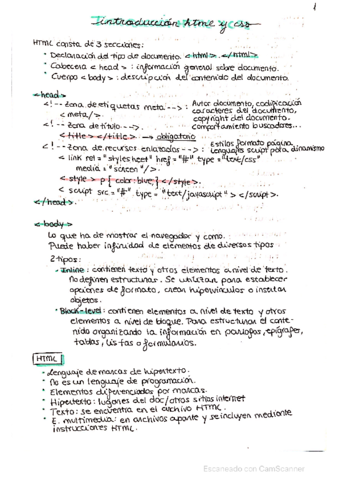 1
Introducción html y css
HTML consta de 3 secciones:
· Declaración del tipo de documento. <html>. </html>
· Cabecera <head> : información general sobre documento.
· Cuerpo <body> : descripción del contenido del documento.
<head>
<!-- Zona de etiquetas meta --> : Autor documento, codificación
<meta/>. caracteres del documento,
copyright del documento.
<!-- Zona de título --> : comportamiento buscadores...
<title> </title> → obligatorio
<!-- Zona de recursos enlazados --> : Estilos formato página
Lenguajes script para dinamismo
<link rel = "stylesheet" href = "#" type = "text/css"
media = "screen"/>.
<style> p { color: blue; } </style>.
<script src = "#" type = "text/javascript"> </script>.
</head>.
<body>
Lo que ha de mostrar el navegador y como.
Puede haber infinidad de elementos de diversos tipos
2 tipos:
- Inline: contienen texto y otros elementos a nivel de texto.
No definen estructuras. Se utilizan para establecer
opciones de formato, crear hipervínculos o insertar
objetos.
- Block-level: contienen elementos a nivel de texto y otros
elementos a nivel de bloque. Para estructurar el conte-
nido organizando la información en párrafos, epígrafes,
tablas, listas o formularios.
HTML
· Lenguaje de marcas de hipertexto.
· No es un lenguaje de programación.
· Elementos diferenciados por marcas.
· Hipertexto: lugares del doc/otros sitios internet
· Texto: se encuentra en el archivo HTML.
· E. multimedia: en archivos aparte y se incluyen mediante
instrucciones HTML.
Escaneado con CamScanner